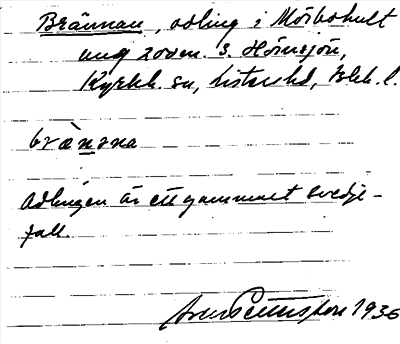 Brännan, odling i Mörbohult
ung 200 m. S. Hörnsjön,
Kyrkh. sn, Listers hd, Blek. l.
brænna
Odlingen är ett gammalt svedje-
fall.
Pettersson 1936